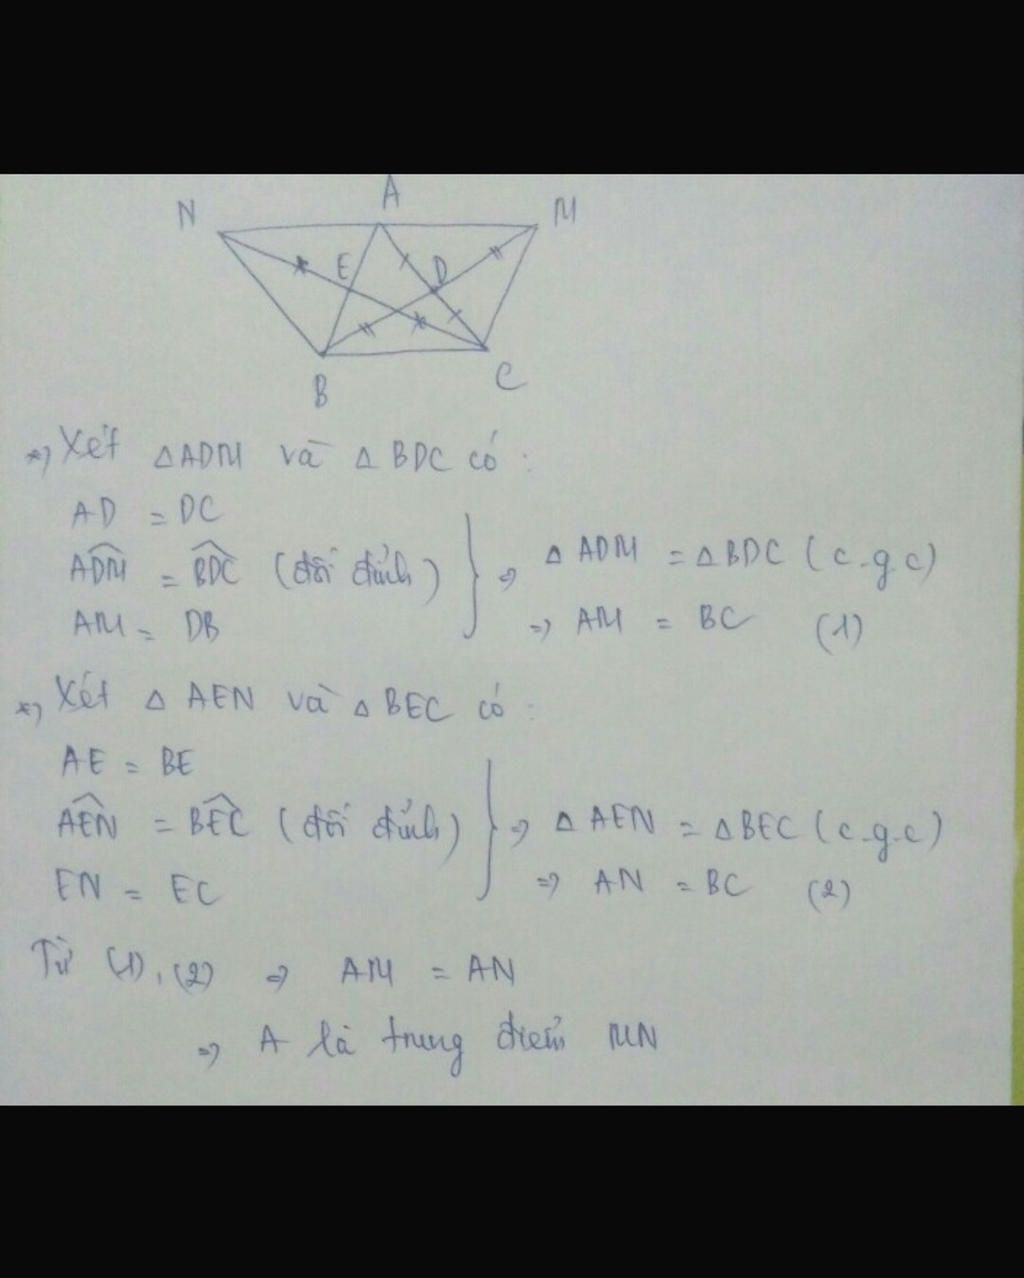 A
N
M
E
D
B
C
*) Xét △ADM và △BDC có:
AD = DC
ADM̂ = BDĈ (đối đỉnh)
AM = DB
} => △ADM = △BDC (c.g.c)
=> AM = BC (1)
*) Xét △AEN và △BEC có:
AE = BE
AEN̂ = BEĈ (đối đỉnh)
EN = EC
} => △AEN = △BEC (c.g.c)
=> AN = BC (2)
Từ (1), (2) => AM = AN
=> A là trung điểm MN